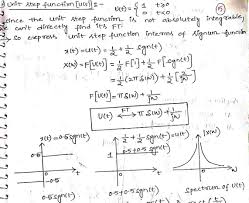 Unit step function [u(t)] :-
u(t) = { 1 t≥0
0 t<0
⑮
Since the unit step function is not absolutely integrable,
we can't directly find its FT.
so express unit step function interms of signum function
x(t) = u(t) = 1/2 + 1/2 sgn(t)
X(ω) = F[u(t)] = 1/2 F[1] + 1/2 F[sgn(t)]
= 1/2 (2πδ(ω)) + 1/2 [2/jω]
F[u(t)] = πδ(ω) + 1/jω
u(t) ⟷FT πδ(ω) + 1/jω
x(t) = 0.5 sgn(t)
0.5
t
-0.5
0.5 sgn(t)
1/2 + 1/2 sgn(t) = u(t)
0.5+0.5 sgn(t)
1
t
0.5+0.5 sgn(t)
|X(ω)|
ω
Spectrum of u(t)